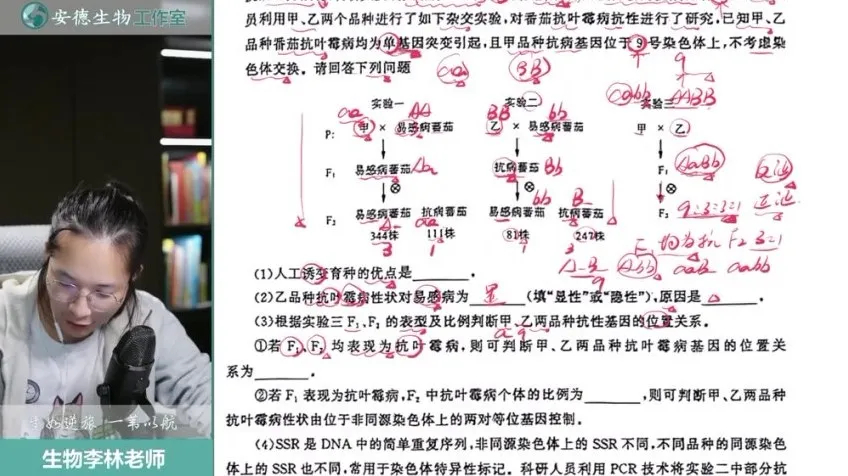 安德生物工作室
员利用甲、乙两个品种进行了如下杂交实验,对番茄抗叶霉病抗性进行了研究,已知甲、乙
品种番茄抗叶霉病均为单基因突变引起,且甲品种抗病基因位于9号染色体上,不考虑染
色体交换。请回答下列问题
(aa) (BB) 9
实验一 实验二 实验三
aa AA BB bb aabb AABB
P: 甲 × 易感病番茄 乙 × 易感病番茄 甲 × 乙
F₁ 易感病番茄 Aa 抗病番茄 Bb F₁ AaBb
⊗ ⊗ ⊗
A_ aa bb B_
F₂ 易感病番茄 抗病番茄 易感病番茄 抗病番茄 F₂ 9:3:3:1
344株 111株 81株 247株
3 1 1 3
F₁均为抗 F₂ 3:1
A_B_ A_bb aaB_ aabb
9
(1)人工诱变育种的优点是________。
(2)乙品种抗叶霉病性状对易感病为 显 (填“显性”或“隐性”),原因是________。
(3)根据实验三 F₁、F₂ 的表型及比例判断甲、乙两品种抗性基因的位置关系。
①若 F₁、F₂ 均表现为抗叶霉病,则可判断甲、乙两品种抗叶霉病基因的位置关
系为________
②若 F₁ 表现为抗叶霉病,F₂ 中抗叶霉病个体的比例为________,则可判断甲、乙两品种
抗叶霉病性状由位于非同源染色体上的两对等位基因控制。
(4)SSR 是 DNA 中的简单重复序列,非同源染色体上的 SSR 不同,不同品种的同源染色
体上的 SSR 也不同,常用于染色体特异性标记。科研人员利用 PCR 技术将实验二中部分抗
生如逆旅 一苇以航
生物李林老师